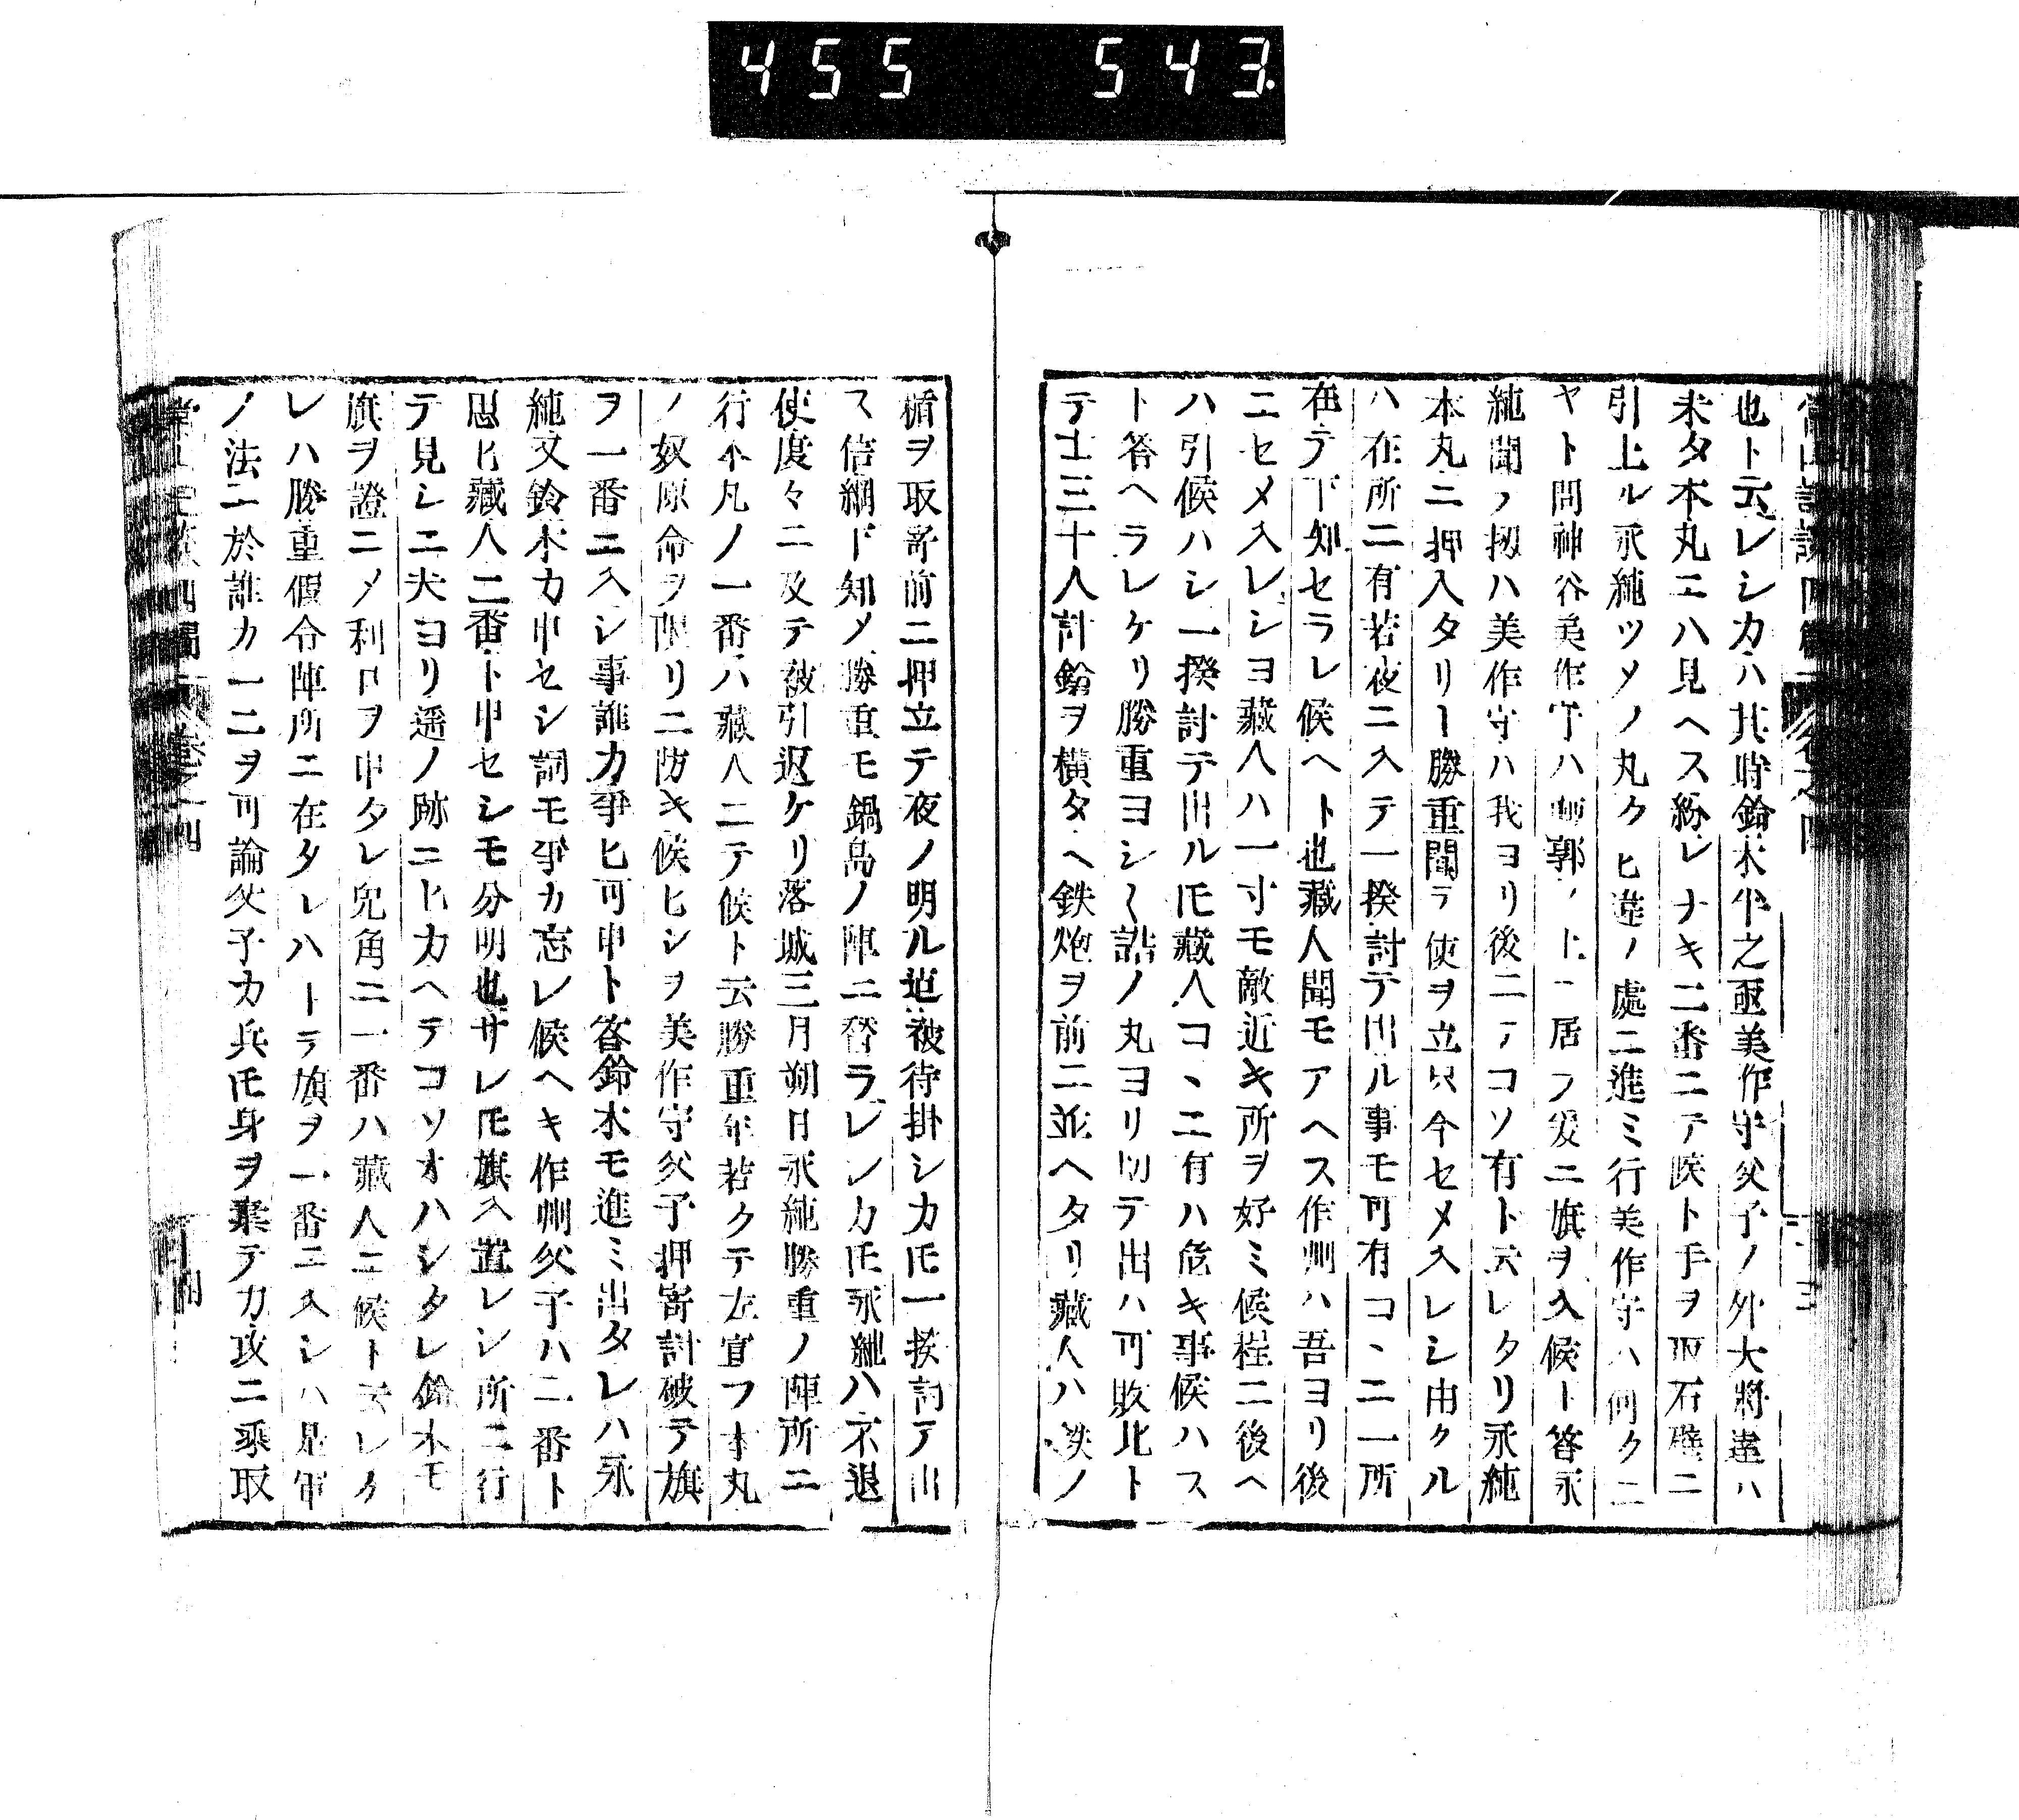 455 543.
也ト云レシカハ其時鈴木半之亟美作守父子ノ外大將達ハ
未タ本丸ニハ見ヘス紛レナキ二番ニテ候ト手ヲ取石壁ニ
引上ル永純ツメノ丸クヒ違ノ處ニ進ミ行美作守ハ何クニ
ヤト問神谷美作守ハ郭ノ上ニ居フ爰ニ旗ヲ入候ト答永
純聞ノ扨ハ美作守ハ我ヨリ後ニテコソ有ト云レタリ永純
本丸ニ押入タリー勝重聞テ使ヲ立只今セメ入レシ由クル
ハ在所ニ有若夜ニ入テ一揆討テ出ル事モ可有コヽニ一所
在テ下知セラレ候ヘト也藏人聞モアヘス作州ハ吾ヨリ後
ニセメ入レシヨ藏人ハ一寸モ敵近キ所ヲ好ミ候程ニ後ヘ
ハ引候ハシ一揆討テ出ル𪜈藏人コヽニ有ハ危キ事候ハス
ト答ヘラレケリ勝重ヨシ〱詰ノ丸ヨリ切テ出ハ可敗北ト
テ士三十人計鎗ヲ横タヘ鉄炮ヲ前ニ並ヘタリ藏人ハ鉄ノ
楯ヲ取寄前ニ押立テ夜ノ明ル迠被待掛シカ𪜈一揆討テ出
ス信綱下知メ勝重モ鍋島ノ陣ニ替ラレシカ𪜈永純ハ不退
使度々ニ及テ被引退ケリ落城三月朔日永純勝重ノ陣所ニ
行本凡ノ一番ハ藏人ニテ候ト云勝重年若クテ左宣フ本丸
ノ奴原命ヲ限リニ防キ候ヒシヲ美作守父子押寄討破テ旗
ヲ一番ニ入シ事誰カ爭ヒ可申ト答鈴木モ進ミ出タレハ永
純又鈴木カ申セシ詞モ爭カ忘レ候ヘキ作州父子ハ二番ト
思ヒ藏人二番ト申セシモ分明也サレ𪜈旗入置レシ所ニ行
テ見シニ夫ヨリ遥ノ跡ニヒカヘテコソオハシタレ鈴木モ
旗ヲ證ニメ利口ヲ申タレ兎角ニ一番ハ藏人ニ候ト云レケ
レハ勝重假令陣所ニ在タレハトテ旗ヲ一番ニ入シハ是軍
ノ法ニ於誰カ一二ヲ可論父子カ兵𪜈身ヲ棄テカ攻ニ乘取